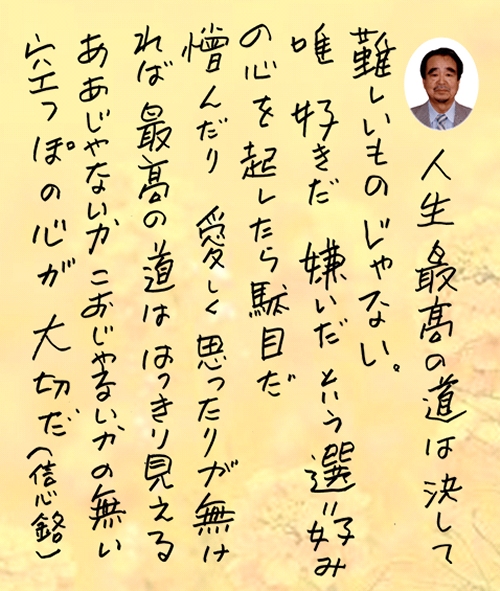 人生 最高の道は 決して
難しいものじゃない。
唯 好きだ 嫌いだ という 選り好み
の心を 起したら 駄目だ
憎んだり 愛しく 思ったりが 無け
れば 最高の道は はっきり見える
ああじゃないか こおじゃないかの 無い
空っぽの心が 大切だ(信心銘)